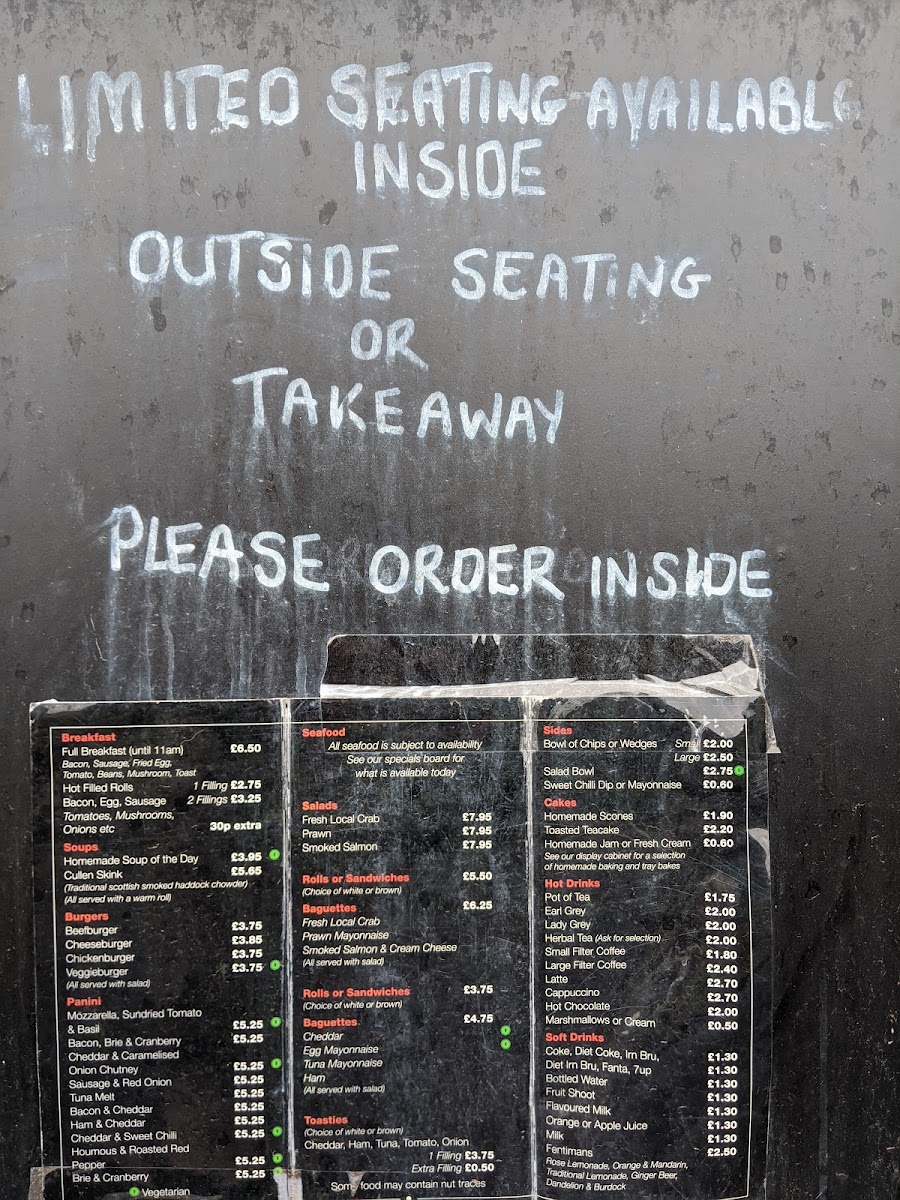 LIMITED SEATING AVAILABLE
INSIDE
OUTSIDE SEATING
OR
TAKEAWAY
PLEASE ORDER INSIDE
Breakfast
Full Breakfast (until 11am) £6.50
Bacon, Sausage, Fried Egg,
Tomato, Beans, Mushroom, Toast
Hot Filled Rolls 1 Filling £2.75
Bacon, Egg, Sausage 2 Fillings £3.25
Tomatoes, Mushrooms,
Onions etc 30p extra
Soups
Homemade Soup of the Day £3.95
Cullen Skink £5.65
(Traditional scottish smoked haddock chowder)
(All served with a warm roll)
Burgers
Beefburger £3.75
Cheeseburger £3.85
Chickenburger £3.75
Veggieburger £3.75
(All served with salad)
Panini
Mozzarella, Sundried Tomato
& Basil £5.25
Bacon, Brie & Cranberry £5.25
Cheddar & Caramelised
Onion Chutney £5.25
Sausage & Red Onion £5.25
Tuna Melt £5.25
Bacon & Cheddar £5.25
Ham & Cheddar £5.25
Cheddar & Sweet Chilli £5.25
Houmous & Roasted Red
Pepper £5.25
Brie & Cranberry £5.25
Vegetarian
Seafood
All seafood is subject to availability
See our specials board for
what is available today
Salads
Fresh Local Crab £7.95
Prawn £7.95
Smoked Salmon £7.95
Rolls or Sandwiches £5.50
(Choice of white or brown)
Baguettes £6.25
Fresh Local Crab
Prawn Mayonnaise
Smoked Salmon & Cream Cheese
(All served with salad)
Rolls or Sandwiches £3.75
(Choice of white or brown)
Baguettes £4.75
Cheddar
Egg Mayonnaise
Tuna Mayonnaise
Ham
(All served with salad)
Toasties
(Choice of white or brown)
Cheddar, Ham, Tuna, Tomato, Onion
1 Filling £3.75
Extra Filling £0.50
Som food may contain nut traces
Sides
Bowl of Chips or Wedges Small £2.00
Large £2.50
Salad Bowl £2.75
Sweet Chilli Dip or Mayonnaise £0.60
Cakes
Homemade Scones £1.90
Toasted Teacake £2.20
Homemade Jam or Fresh Cream £0.60
See our display cabinet for a selection
of homemade baking and tray bakes
Hot Drinks
Pot of Tea £1.75
Earl Grey £2.00
Lady Grey £2.00
Herbal Tea (Ask for selection) £2.00
Small Filter Coffee £1.80
Large Filter Coffee £2.40
Latte £2.70
Cappuccino £2.70
Hot Chocolate £2.00
Marshmallows or Cream £0.50
Soft Drinks
Coke, Diet Coke, Irn Bru, £1.30
Diet Irn Bru, Fanta, 7up £1.30
Bottled Water £1.30
Fruit Shoot £1.30
Flavoured Milk £1.30
Orange or Apple Juice £1.30
Milk £1.30
Fentimans £2.50
Rose Lemonade, Orange & Mandarin,
Traditional Lemonade, Ginger Beer,
Dandelion & Burdock